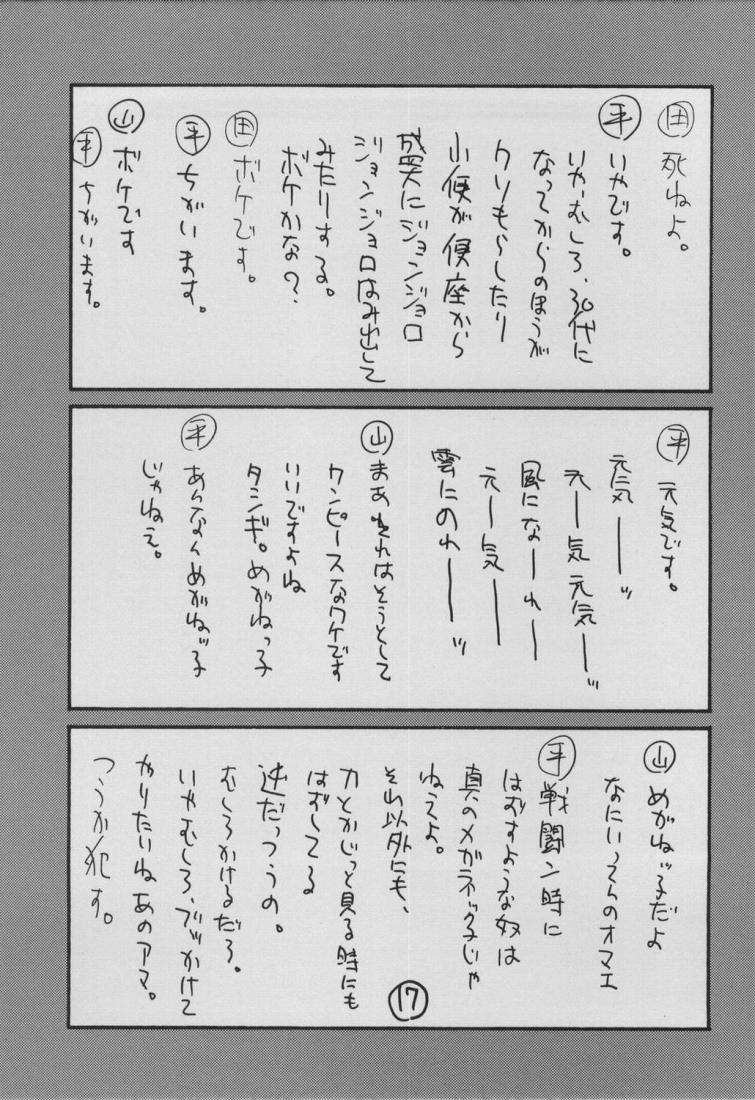 田 死ねよ。
平 いやです。
いや、むしろ、30代に
なってからのほうが
クソもらしたり
小便が便座から
成実にジョンジョロ
ジョンジョロはみ出して
みたりする。
ボケかな?
田 ボケです。
平 ちがいます。
山 ボケです
平 ちがいます。
平 元気です。
元気ーーッ
元ー気元気ーッ
風になーれー
元ー気ーー
雲にのれーーッ
山 まあそれはそうとして
ワンピースなワケです
いいですよね
タシギ。めがねっ子
平 あんなんめがねッ子
じゃねえ。
山 めがねッ子だよ
なにいってんのオマエ
平 戦闘ン時に
はずすような奴は
真のメガネッ子じゃ
ねえよ。
それ以外にも、
刀とかじっと見る時にも
はずしてる
逆だっつうの。
むしろかけるだろ。
いやむしろ、ブッかけて
やりたいねあのアマ。
つうか犯す。
17